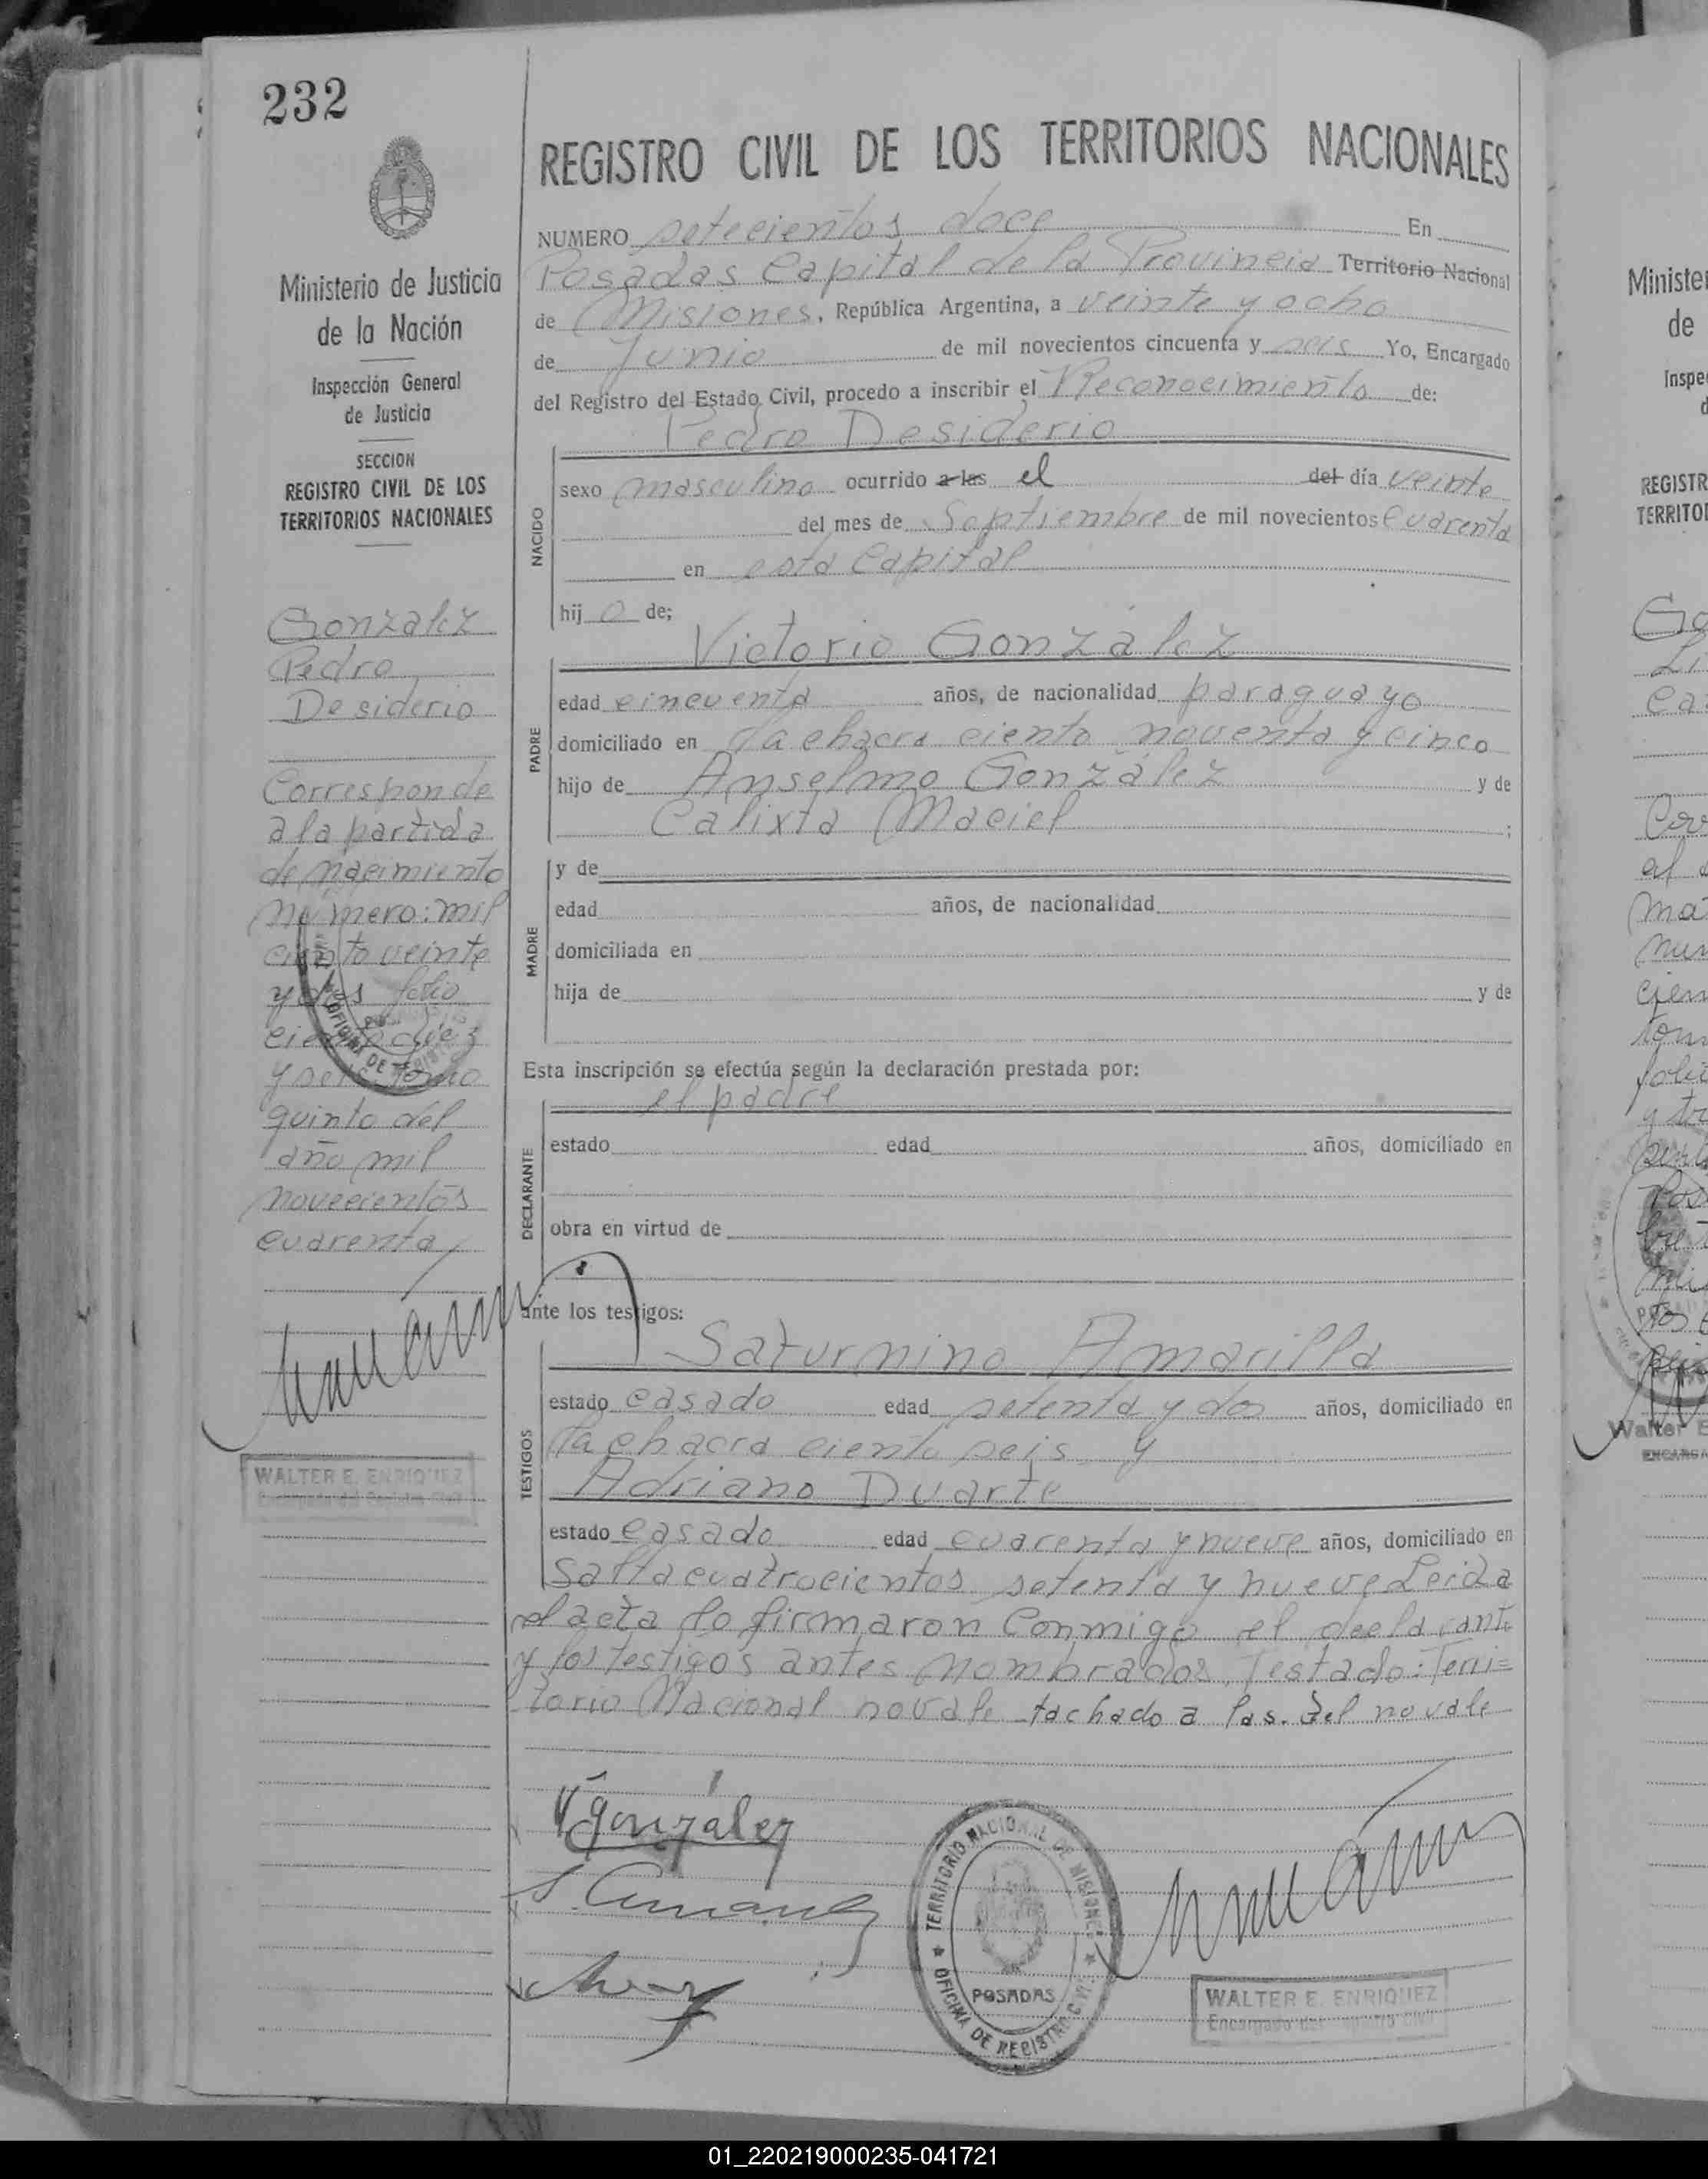 232
REGISTRO CIVIL DE LOS TERRITORIOS NACIONALES
Ministerio de Justicia
de la Nación
Inspección General
de Justicia
SECCION
REGISTRO CIVIL DE LOS
TERRITORIOS NACIONALES
Gonzalez
Pedro
Desiderio
Corresponde
a la partida
de nacimiento
número: mil
ciento veinte
y dos folio
ciento diez
y seis tomo
quinto del
año mil
novecientos
cuarenta
WALTER E. ENRIQUEZ
Encargado del Registro Civil
NUMERO setecientos doce En
Posadas Capital de la Provincia Territorio Nacional
de Misiones, República Argentina, a veinte y ocho
de Junio de mil novecientos cincuenta y seis Yo, Encargado
del Registro del Estado Civil, procedo a inscribir el Reconocimiento de:
Pedro Desiderio
NACIDO
sexo masculino ocurrido a las el del día veinte
del mes de Septiembre de mil novecientos Cuarenta
en esta Capital
hijo de;
Victorio González
PADRE
edad cincuenta años, de nacionalidad paraguayo
domiciliado en la chacra ciento noventa y cinco
hijo de Anselmo González y de
Calixta Maciel ;
MADRE
y de
edad años, de nacionalidad
domiciliada en
hija de y de
Esta inscripción se efectúa según la declaración prestada por:
el padre
DECLARANTE
estado edad años, domiciliado en
obra en virtud de
ante los testigos:
Saturnino Amarilla
TESTIGOS
estado casado edad setenta y dos años, domiciliado en
la chacra ciento seis y
Adriano Duarte
estado casado edad cuarenta y nueve años, domiciliado en
Salta cuatrocientos setenta y nueve Leida
el acta lo firmaron conmigo el declarante
y los testigos antes nombrados. Testado: Terri=
torio Nacional no vale tachado a las. del no vale
V González
TERRITORIO NACIONAL DE MISIONES
POSADAS
OFICINA DE REGISTRO CIVIL
WALTER E. ENRIQUEZ
Encargado del Registro Civil
Ministe
de
Inspe
d
REGISTR
TERRITO
Walter E
ENCARGA
01_220219000235-041721